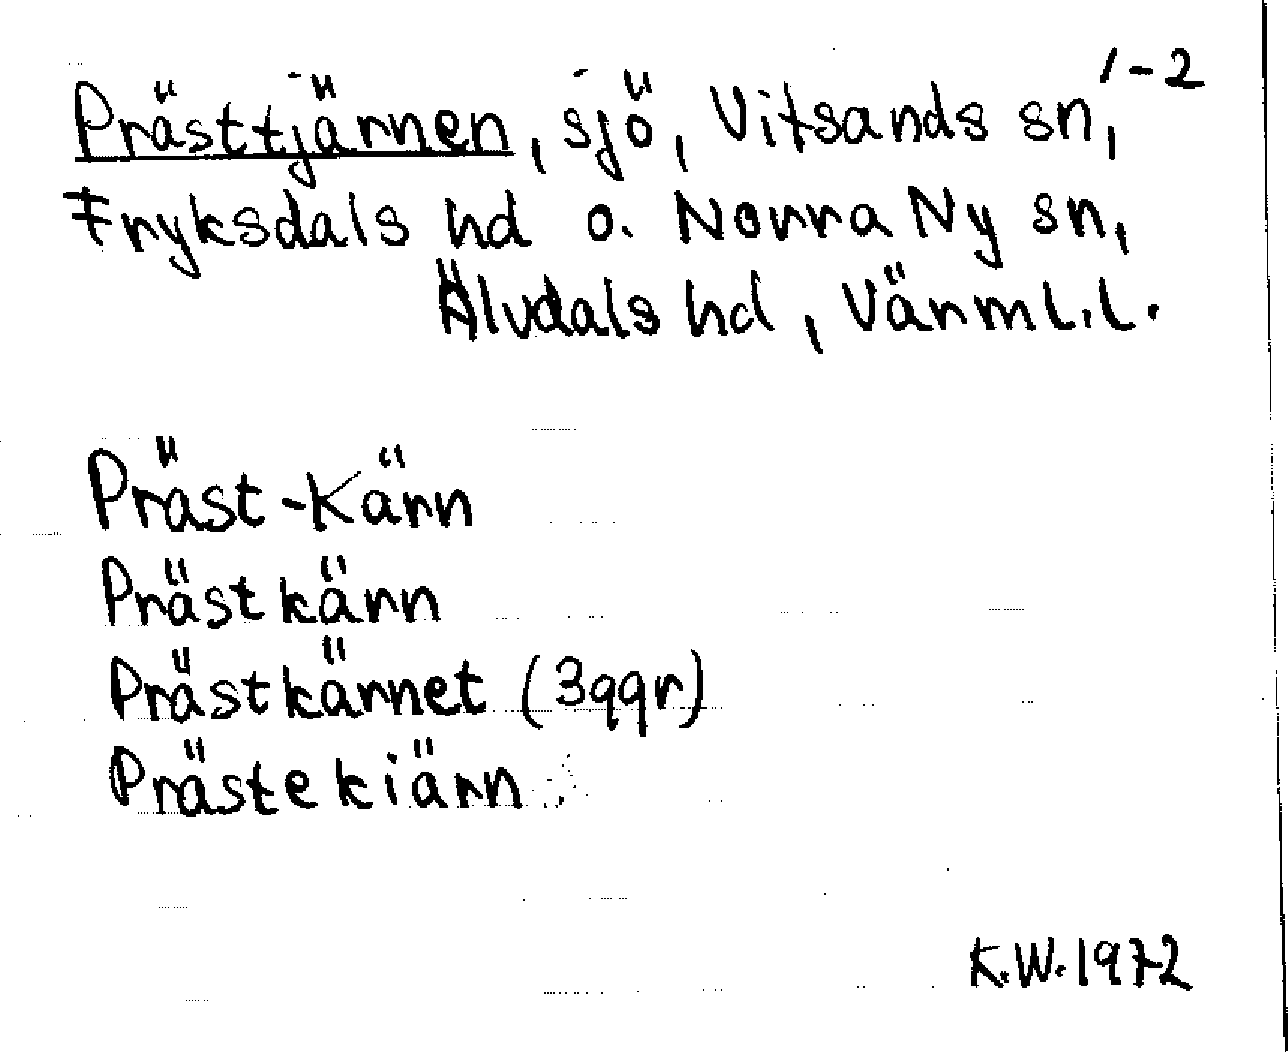 1-2
Prästtjärnen, sjö, Vitsands sn,
Fryksdals hd o. Norra Ny sn,
Älvdals hd, Värml.l.
Präst-Kärn
Prästkärn
Prästkärnet (3ggr)
Prästekiärn
K.W.1972